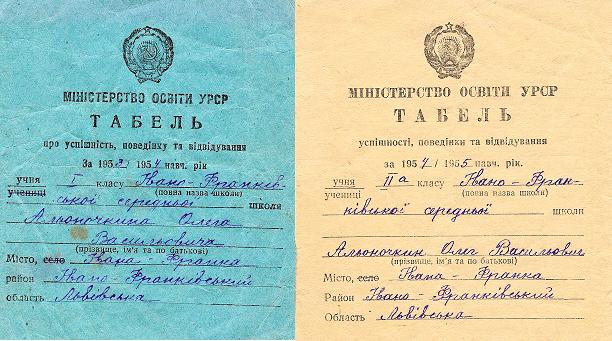 МІНІСТЕРСТВО ОСВІТИ УРСР
ТАБЕЛЬ
про успішність, поведінку та відвідування
За 1953/1954 навч. рік
учня I класу Івано-Франків-
учениці (повна назва школи)
ської середньої школи
Альоночкина Олега
Васильовича
(прізвище, ім'я та по батькові)
Місто, село Івана-Франка
район Івано-Франківський
область Львівська
МІНІСТЕРСТВО ОСВІТИ УРСР
ТАБЕЛЬ
успішності, поведінки та відвідування
за 1954/1955 навч. рік.
учня IIа класу Івано-Фран-
учениці (повна назва школи)
ківської середньої школи
Альоночкин Олег Васильович
(прізвище, ім'я та по батькові)
Місто, село Івана-Франка
Район Івано-Франківський
Область Львівська